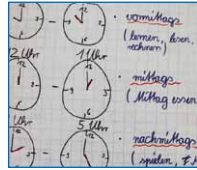 vormittags
(lernen, lesen,
rechnen)
2 Uhr - 1 Uhr
mittags
(Mittag essen
Uhr - 5 Uhr
nachmittags
(spielen,